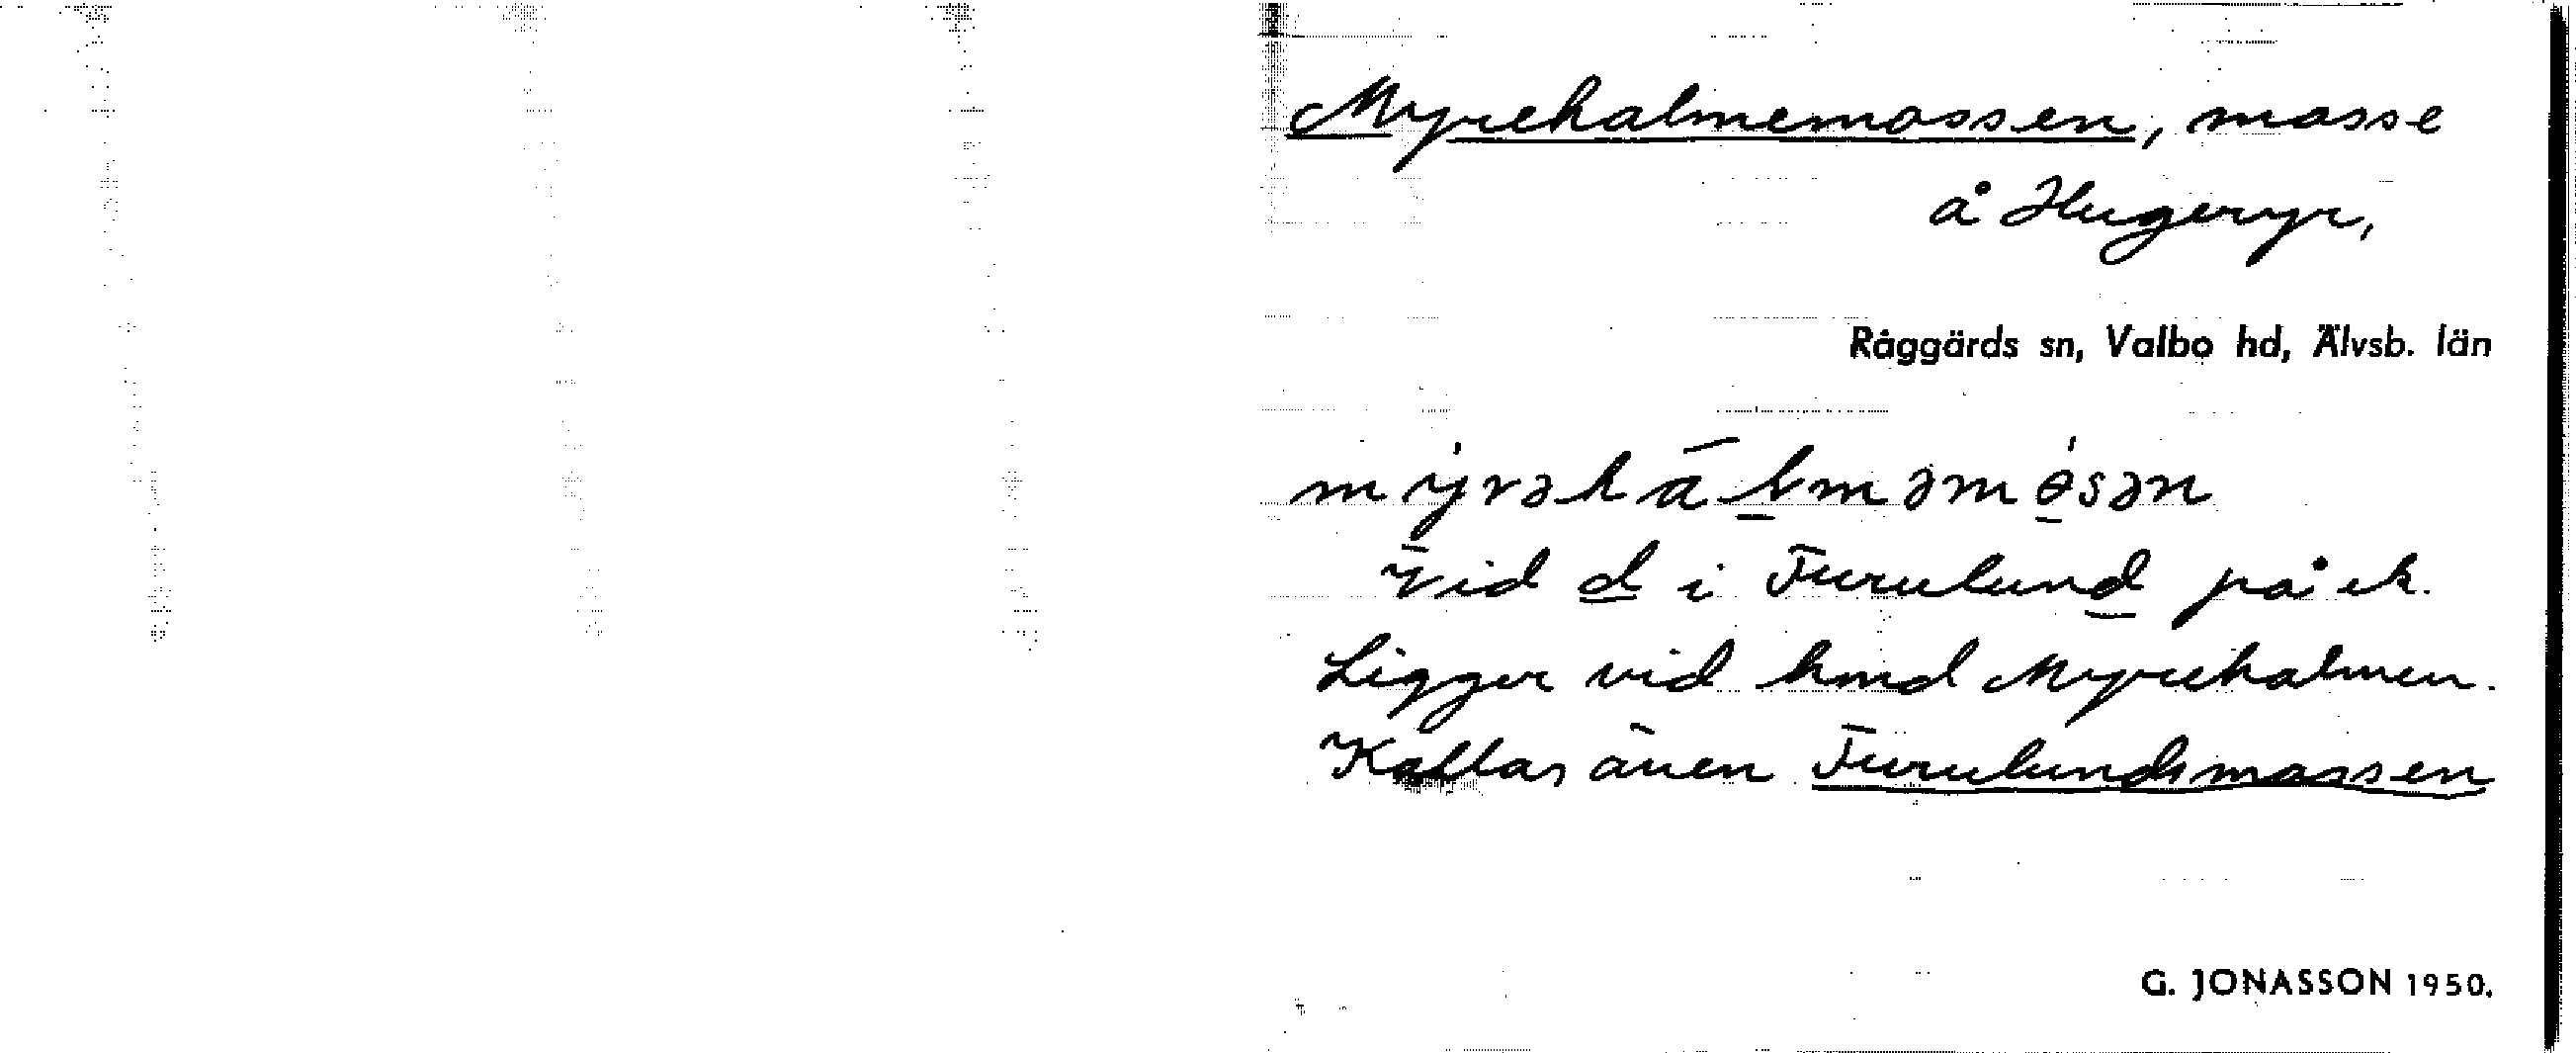 Myreholmemossen, mosse
å Hugeryr,
Råggärds sn, Valbo hd, Älvsb. län
Vid d i Furulund på ek.
Ligger vid hmd Myreholmen.
Kallas även Furulundsmossen
G. JONASSON 1950.